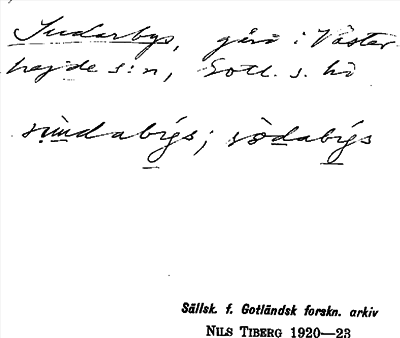 Sudarbys, gård i Väster
hejde s:n, Gotl. s. hd
Sällsk. f. Gotländsk forskn. arkiv
NILS TIBERG 1920—23